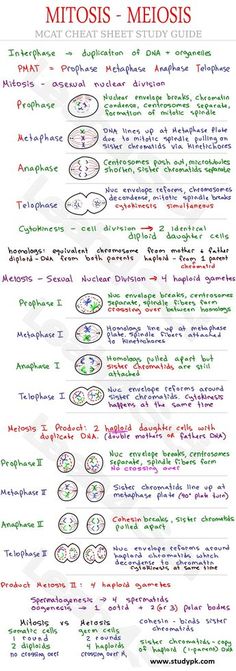 MITOSIS - MEIOSIS
MCAT CHEAT SHEET STUDY GUIDE
Interphase → duplication of DNA + organelles
PMAT = Prophase Metaphase Anaphase Telophase
Mitosis - asexual nuclear division
Prophase
Nuclear envelope breaks, chromatin
condense, centrosomes separate,
formation of mitotic spindle
Metaphase
DNA lines up at Metaphase Plate
due to mitotic spindle pulling on
sister chromatids via kinetichores
Anaphase
Centrosomes push out, microtubules
shorten, sister chromatids separate
Telophase
Nuc envelope reforms, chromosomes
decondense, mitotic spindle breaks
Cytokinesis simultaneous
Cytokinesis - cell division → 2 identical
diploid daughter cells
homologs: equivalent chromosome from mother + father
diploid - DNA from both parents haploid - from 1 parent
chromatid
Meiosis - Sexual Nuclear Division → 4 haploid gametes
Prophase I
Nuc envelope breaks, centrosomes
separate, spindle fibers form
crossing over between homologs
Metaphase I
Homologs line up at metaphase
plate, spindle fibers attached
to kinetochores
Anaphase I
Homologs pulled apart but
sister chromatids are still
attached
Telophase I
Nuc envelope reforms around
sister chromatids. Cytokinesis
happens at the same time
Meiosis I Product: 2 haploid daughter cells with
duplicate DNA. (double mothers or fathers DNA)
Prophase II
Nuc envelope breaks, centrosomes
separate, spindle fibers form
No crossing over
Metaphase II
Sister chromatids line up at
metaphase plate (90° plate turn)
Anaphase II
Cohesin breaks, sister chromatids
pulled apart
Telophase II
Nuc envelope reforms around
haploid chromatids which
decondense to chromatin
Cytokinesis at same time
Product Meiosis II: 4 haploid gametes
Spermatogenesis → 4 spermatids
oogenesis → 1 ootid + 2 (or 3) polar bodies
Mitosis vs Meiosis
somatic cells germ cells
1 round 2 rounds
2 diploids 4 haploids
no crossing over crossing over
Cohesin - binds sister
chromatids
Sister chromatid - copy
of DNA
www.studypk.com